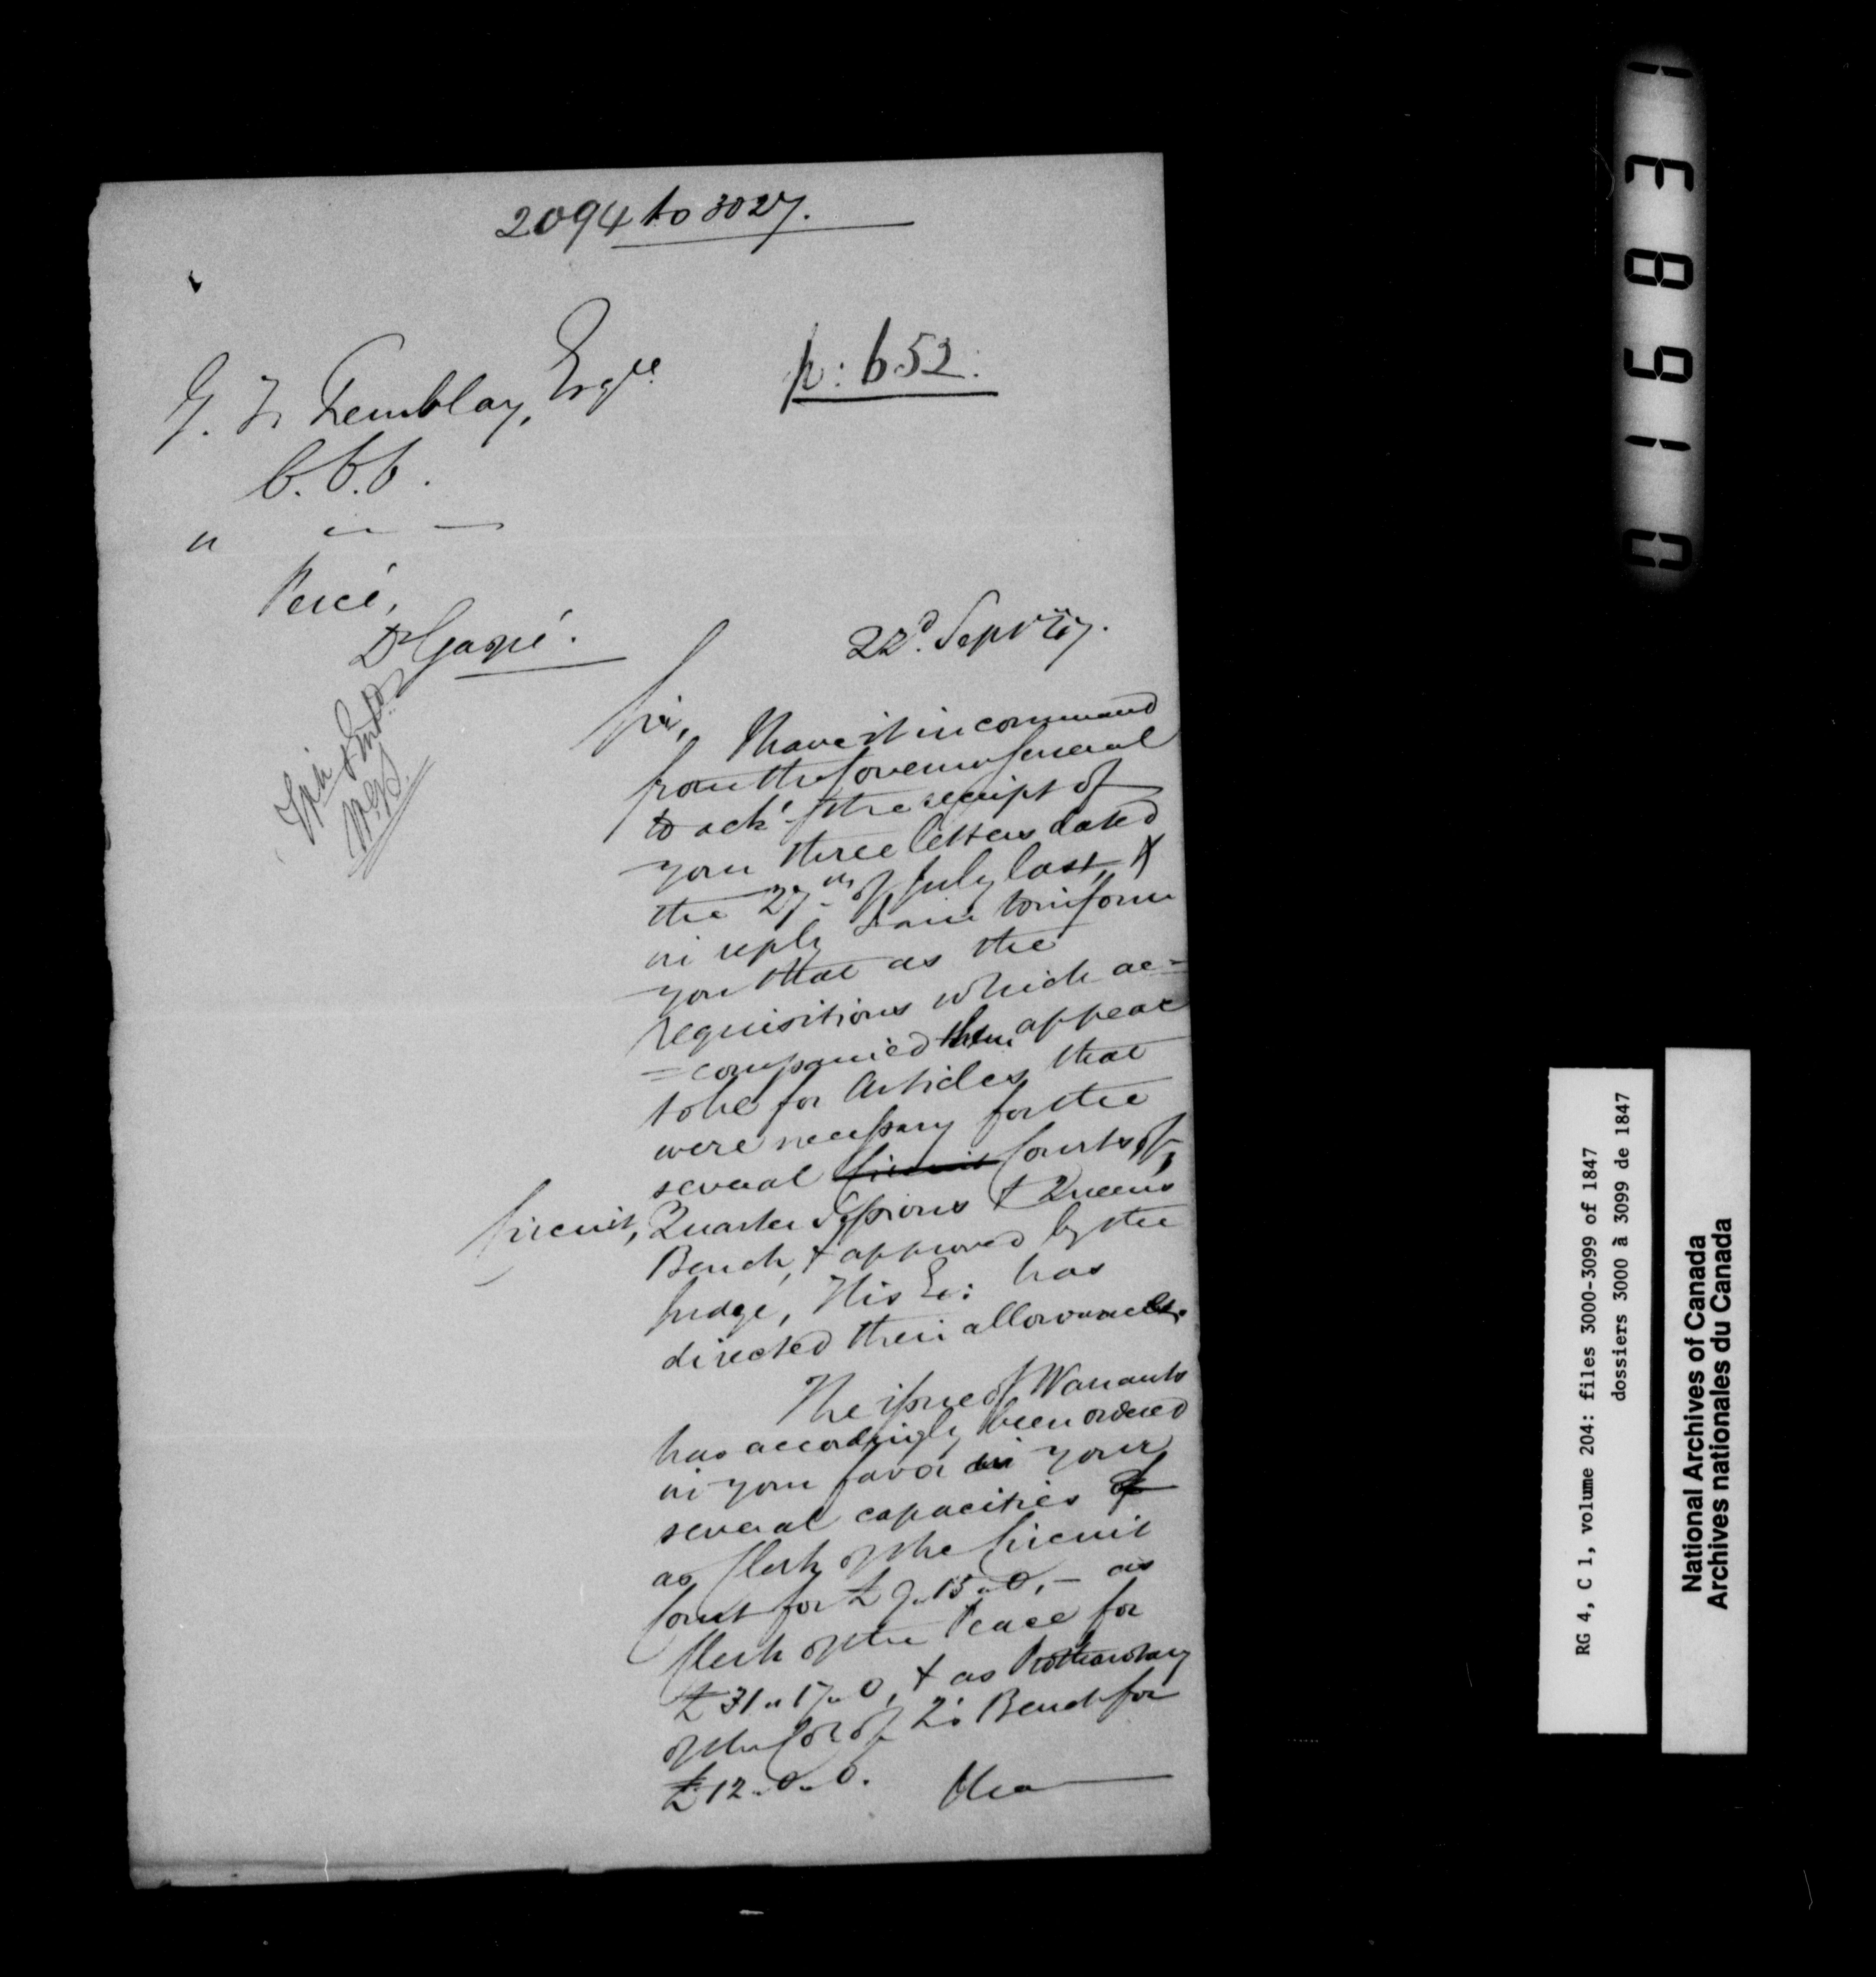 2094 to 3027.
p: 652.
G. F. Tremblay, Esqre
C.C.C.
" " —
Percé,
Dt Gaspé.
22d. Septr 47.
Sir,
I have it in command
from the Governor General
to ackt the receipt of
your three letters dated
the 27th of July last, &
in reply I am to inform
you that as the
requisitions which ac=
=companied them appear
to be for Articles that
were necessary for the
several Circuit Courts of,
Circuit, Quarter Sessions & Queen's
Bench, & approved by the
Judge, His Ex: has
directed their allowances.
The issue of Warrants
has accordingly been ordered
in your favor in your
several capacities of
as Clerk of the Circuit
Court for £9.15.0, — as
Clerk of the Peace for
£31.17.0, & as Prothonotary
of the Cot of Q: Bench for
£12.0.0.
016831
RG 4, C 1, volume 204: files 3000-3099 of 1847
dossiers 3000 à 3099 de 1847
National Archives of Canada
Archives nationales du Canada